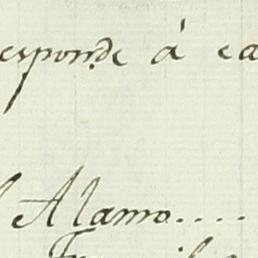 esponde á ca
l Alamo....